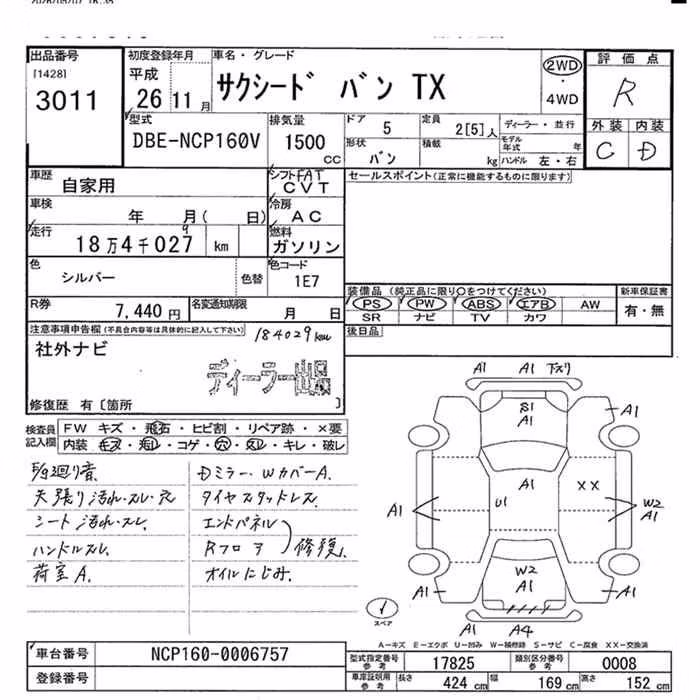 出品番号
[1428]
3011
初度登録年月
平成
26 11 月
車名・グレード
サクシード バン TX
2WD
・
4WD
評価点
R
外装 内装
C D
型式
DBE-NCP160V
排気量
1500
CC
ドア 5
定員 2[5]人
ディーラー・並行
形状 バン
積載 kg
モデル年式 年
ハンドル 左・右
車歴
自家用
シフト FAT
CVT
セールスポイント(正常に機能するものに限ります)
車検
年 月( 日)
冷房
AC
走行
18万4千027 km
9
燃料
ガソリン
色
シルバー
色替
色コード
1E7
装備品 (純正品に限り○をつけてください)
PS PW ABS エアB AW
SR ナビ TV カワ
新車保証書
有・無
R券
7,440 円
名変通知期限
月 日
後日品
注意事項申告欄 (不具合内容等は具体的に記入して下さい)
184029km
社外ナビ
ディーラー出品
修復歴 有〔箇所 〕
検査員記入欄
FW キズ・飛石・ヒビ割・リペア跡・×要
内装 キズ・汚れ・コゲ・穴・スレ・キレ・破レ
天張り汚れ・スレ・穴
シート汚れ・スレ
ハンドルスレ
荷室A.
Dミラー・WカバーA.
タイヤスタッドレス
エンドパネル
Rフロア
修復
オイルにじみ.
A1 A1 下スリ
S1
A1
A1
A1
U1
XX
A1
W2
A1
W2
A1
A1
A1
A1 A4
スペア
A-キズ E-エクボ U-凹み W-補修跡 S-サビ C-腐食 XX-交換済
車台番号
NCP160-0006757
登録番号
型式指定番号
参考
17825
類別区分番号
参考
0008
車庫証明用
参考
長さ 424 cm
幅 169 cm
高さ 152 cm